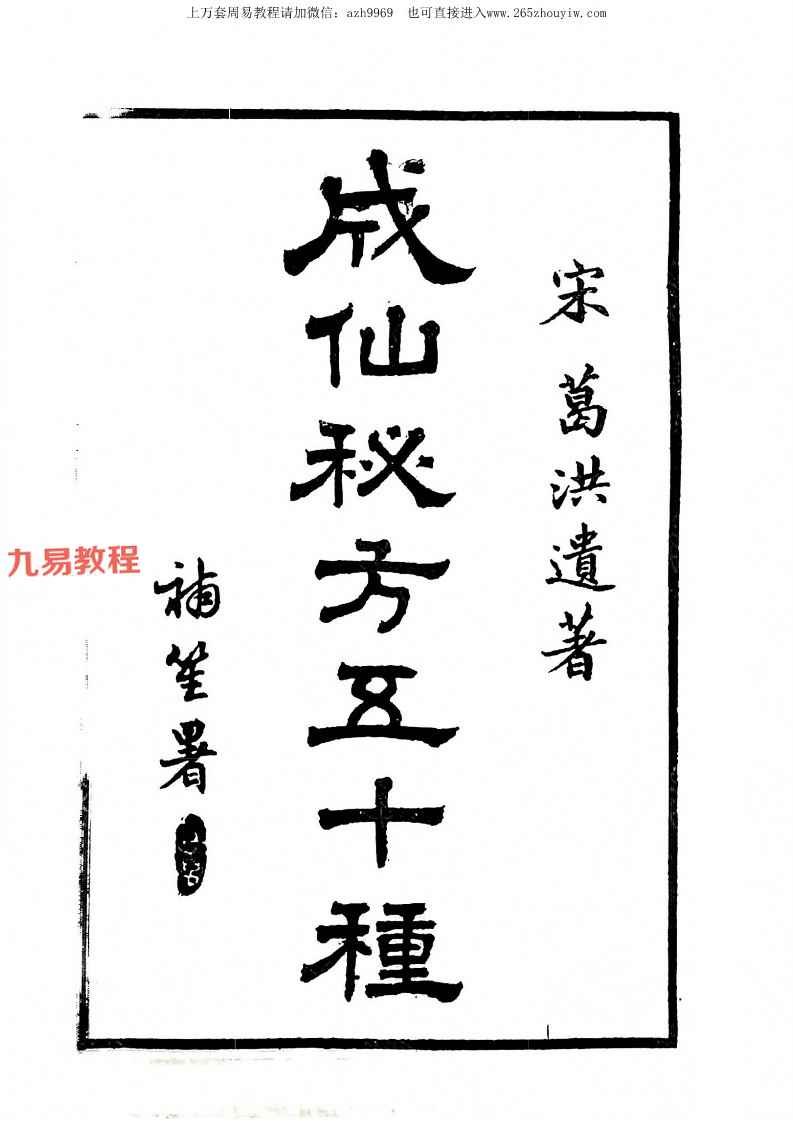 上万套周易教程请加微信：azh9969 也可直接进入www.265zhouyiw.com
宋 葛洪遺著
成仙秘方五十種
補笙署
九易教程